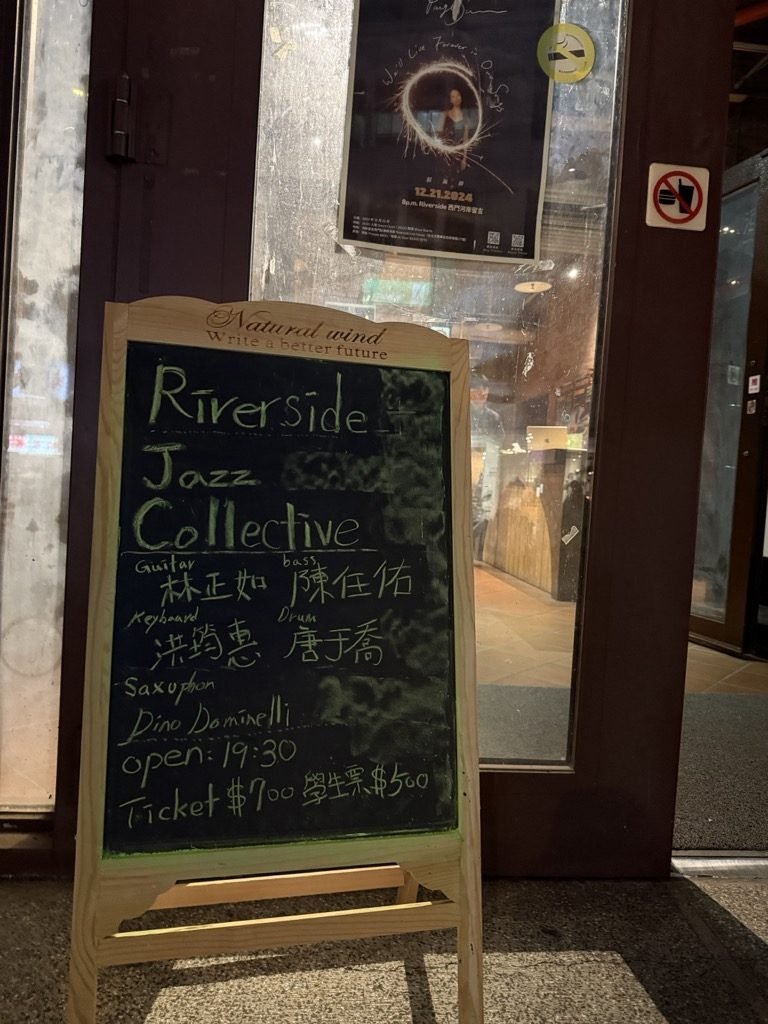 12.21.2024
8p.m. Riverside 西門河岸留言
Natural wind
Write a better future
Riverside
Jazz
Collective
Guitar bass
林正如 陳任佑
Keyboard Drum
洪筠惠 唐于喬
Saxophon
Dino Dominelli
open: 19:30
Ticket $700 學生票 $500